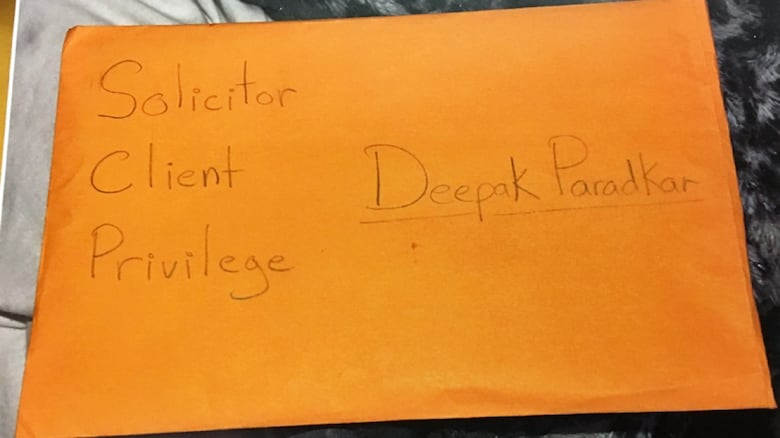 Solicitor
Client
Privilege
Deepak Paradkar